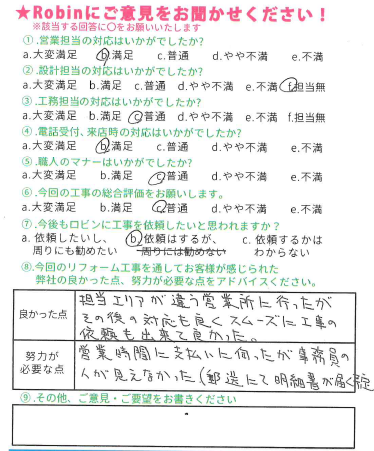 ★Robinにご意見をお聞かせください！
※該当する回答に〇をお願いいたします
①.営業担当の対応はいかがでしたか?
a.大変満足 b.満足 c.普通 d.やや不満 e.不満
②.設計担当の対応はいかがでしたか?
a.大変満足 b.満足 c.普通 d.やや不満 e.不満 f.担当無
③.工務担当の対応はいかがでしたか?
a.大変満足 b.満足 c.普通 d.やや不満 e.不満 f.担当無
④.電話受付、来店時の対応はいかがでしたか?
a.大変満足 b.満足 c.普通 d.やや不満 e.不満
⑤.職人のマナーはいかがでしたか?
a.大変満足 b.満足 c.普通 d.やや不満 e.不満
⑥.今回の工事の総合評価をお願いします。
a.大変満足 b.満足 c.普通 d.やや不満 e.不満
⑦.今後もロビンに工事を依頼したいと思われますか？
a. 依頼したいし、 b.依頼はするが、 c. 依頼するかは
周りにも勧めたい 周りには勧めない わからない
⑧.今回のリフォーム工事を通してお客様が感じられた
弊社の良かった点、努力が必要な点をアドバイスください。
良かった点
担当エリアが違う営業所に行ったが
その後の対応も良くスムーズに工事の
依頼も出来て良かった。
努力が
必要な点
営業時間に支払いに伺ったが事務員の
人が見えなかった(郵送にて明細書が届く
⑨.その他、ご意見・ご要望をお書きください